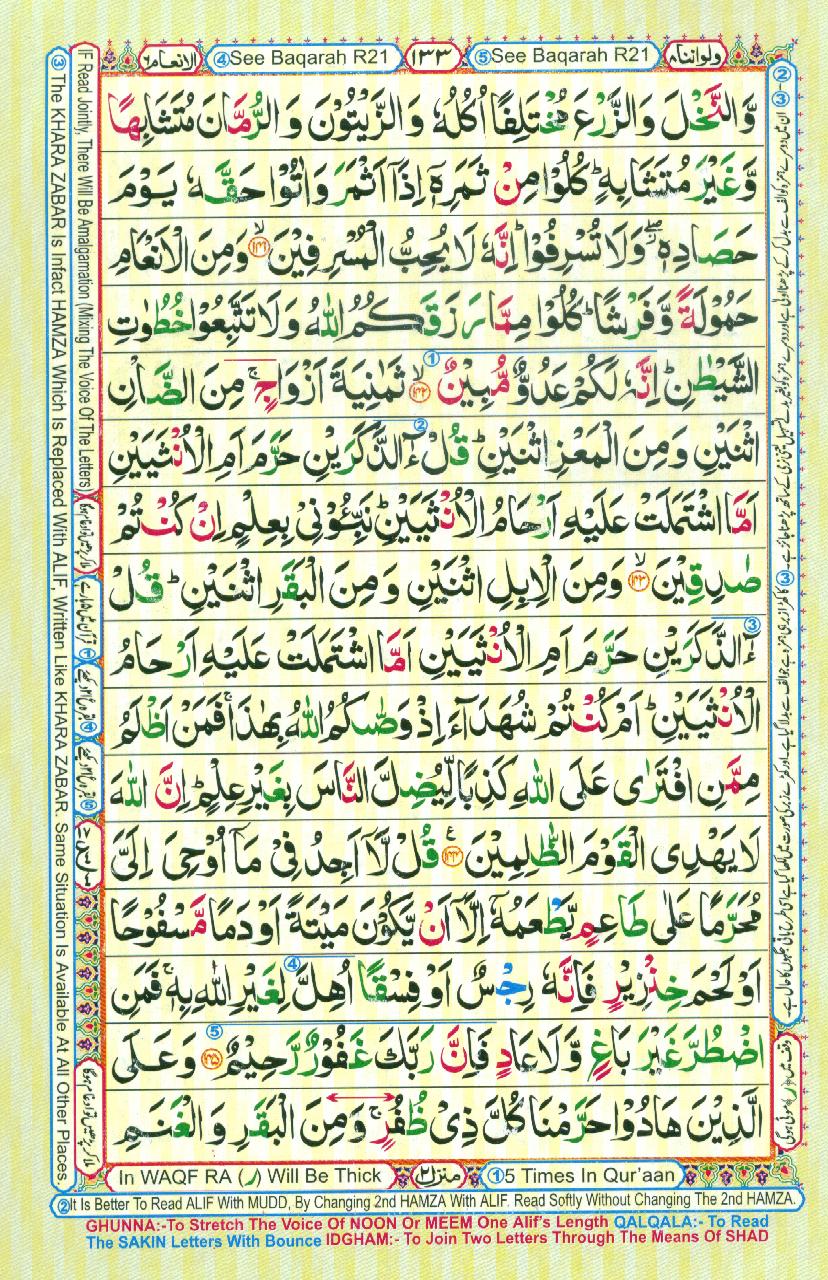 ولواننا٨
⑤See Baqarah R21
١٣٣
④See Baqarah R21
الانعام٦
وَّالنَّخْلَ وَالزَّرْعَ مُخْتَلِفًا اُكُلُهٗ وَالزَّيْتُوْنَ وَالرُّمَّانَ مُتَشَابِهًا
وَّغَيْرَ مُتَشَابِهٍؕ كُلُوْا مِنْ ثَمَرِهٖۤ اِذَاۤ اَثْمَرَ وَاٰتُوْا حَقَّهٗ يَوْمَ
حَصَادِهٖۖ وَلَا تُسْرِفُوْاؕ اِنَّهٗ لَا يُحِبُّ الْمُسْرِفِيْنَۙ ﴿۱۴۱﴾ وَمِنَ الْاَنْعَامِ
حَمُوْلَةً وَّفَرْشًاؕ كُلُوْا مِمَّا رَزَقَكُمُ اللّٰهُ وَلَا تَتَّبِعُوْا خُطُوٰتِ
الشَّيْطٰنِؕ اِنَّهٗ لَكُمْ عَدُوٌّ مُّبِيْنٌۙ ﴿۱۴۲﴾ ① ثَمٰنِيَةَ اَزْوَاجٍۚ مِنَ الضَّاْنِ
اثْنَيْنِ وَمِنَ الْمَعْزِ اثْنَيْنِؕ قُلْ ② ءٰٓالذَّكَرَيْنِ حَرَّمَ اَمِ الْاُنْثَيَيْنِ
اَمَّا اشْتَمَلَتْ عَلَيْهِ اَرْحَامُ الْاُنْثَيَيْنِؕ نَبِّـُٔوْنِيْ بِعِلْمٍ اِنْ كُنْتُمْ
صٰدِقِيْنَۙ ﴿۱۴۳﴾ وَمِنَ الْاِبِلِ اثْنَيْنِ وَمِنَ الْبَقَرِ اثْنَيْنِؕ قُلْ
③ ءٰٓالذَّكَرَيْنِ حَرَّمَ اَمِ الْاُنْثَيَيْنِ اَمَّا اشْتَمَلَتْ عَلَيْهِ اَرْحَامُ
الْاُنْثَيَيْنِؕ اَمْ كُنْتُمْ شُهَدَآءَ اِذْ وَصّٰىكُمُ اللّٰهُ بِهٰذَاۚ فَمَنْ اَظْلَمُ
مِمَّنِ افْتَرٰى عَلَى اللّٰهِ كَذِبًا لِّيُضِلَّ النَّاسَ بِغَيْرِ عِلْمٍؕ اِنَّ اللّٰهَ
لَا يَهْدِى الْقَوْمَ الظّٰلِمِيْنَ ﴿۱۴۴﴾ۧ قُلْ لَّاۤ اَجِدُ فِيْ مَاۤ اُوْحِيَ اِلَيَّ
مُحَرَّمًا عَلٰى طَاعِمٍ يَّطْعَمُهٗۤ اِلَّاۤ اَنْ يَّكُوْنَ مَيْتَةً اَوْ دَمًا مَّسْفُوْحًا
اَوْ لَحْمَ خِنْزِيْرٍ فَاِنَّهٗ رِجْسٌ اَوْ فِسْقًا ④ اُهِلَّ لِغَيْرِ اللّٰهِ بِهٖۚ فَمَنِ
اضْطُرَّ غَيْرَ بَاغٍ وَّلَا عَادٍ فَاِنَّ رَبَّكَ غَفُوْرٌ رَّحِيْمٌ ⑤ ﴿۱۴۵﴾ وَعَلَى
الَّذِيْنَ هَادُوْا حَرَّمْنَا كُلَّ ذِيْ ظُفُرٍۚ وَمِنَ الْبَقَرِ وَالْغَنَمِ
IF Read Jointly, There Will Be Amalgamation (Mixing The Voice Of The Letters)
③ The KHARA ZABAR Is Infact HAMZA Which Is Replaced With ALIF, Written Like KHARA ZABAR. Same Situation Is Available At All Other Places.
①5 Times In Qur'aan
منزل٢
In WAQF RA (ر) Will Be Thick
②It Is Better To Read ALIF With MUDD, By Changing 2nd HAMZA With ALIF. Read Softly Without Changing The 2nd HAMZA.
GHUNNA:-To Stretch The Voice Of NOON Or MEEM One Alif's Length QALQALA:- To Read
The SAKIN Letters With Bounce IDGHAM:- To Join Two Letters Through The Means Of SHAD